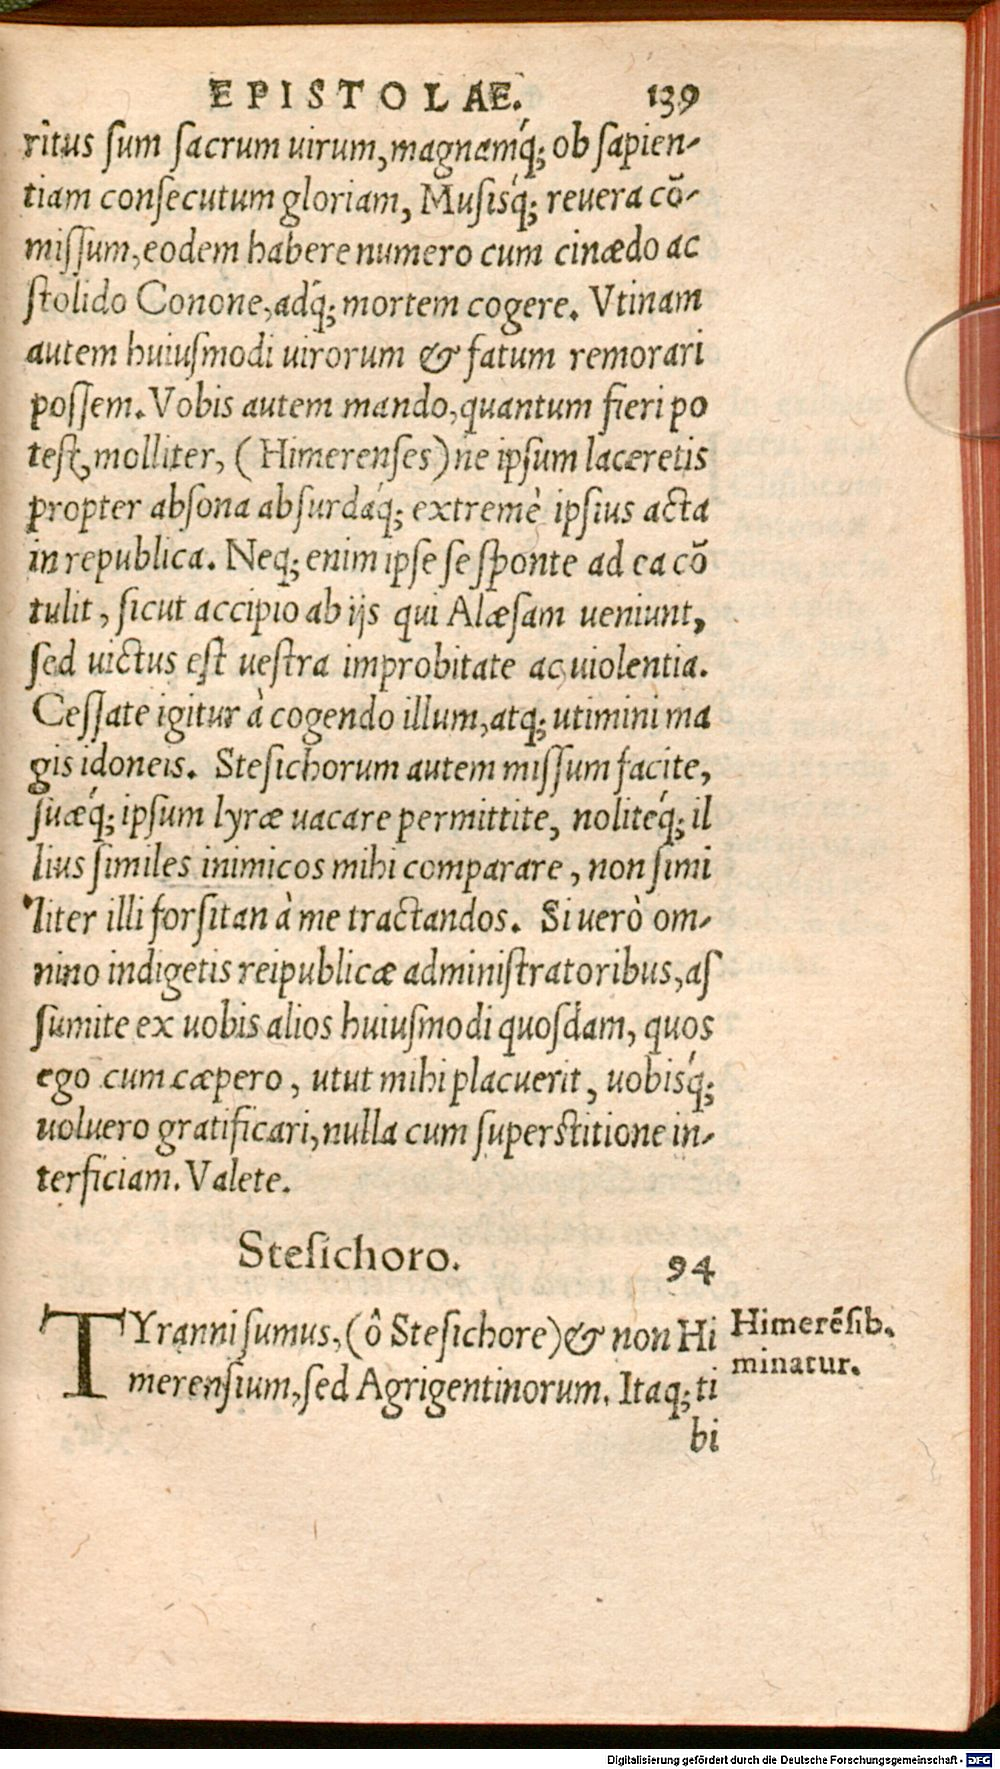 EPISTOLAE. 139
ritus sum sacrum uirum, magnamq́; ob sapien-
tiam consecutum gloriam, Musisq́; reuera cō-
missum, eodem habere numero cum cinædo ac
stolido Conone, adq́; mortem cogere. Vtinam
autem huiusmodi uirorum & fatum remorari
possem. Vobis autem mando, quantum fieri po
test, molliter, (Himerenses) ne ipsum laceretis
propter absona absurdaq́; extremè ipsius acta
in republica. Neq; enim ipse se sponte ad ea cō
tulit, sicut accipio ab ijs qui Alæsam ueniunt,
sed uictus est uestra improbitate ac uiolentia.
Cessate igitur à cogendo illum, atq; utimini ma
gis idoneis. Stesichorum autem missum facite,
suæq́; ipsum lyræ uacare permittite, noliteq́; il
lius similes inimicos mihi comparare, non simi
liter illi forsitan à me tractandos. Si uerò om-
nino indigetis reipublicæ administratoribus, as
sumite ex uobis alios huiusmodi quosdam, quos
ego cum cæpero, utut mihi placuerit, uobisq́;
uoluero gratificari, nulla cum superstitione in-
terficiam. Valete.
Stesichoro. 94
TYranni sumus, (ô Stesichore) & non Hi
merensium, sed Agrigentinorum. Itaq; ti
bi
Himerēsib.
minatur.
Digitalisierung gefördert durch die Deutsche Forschungsgemeinschaft - DFG